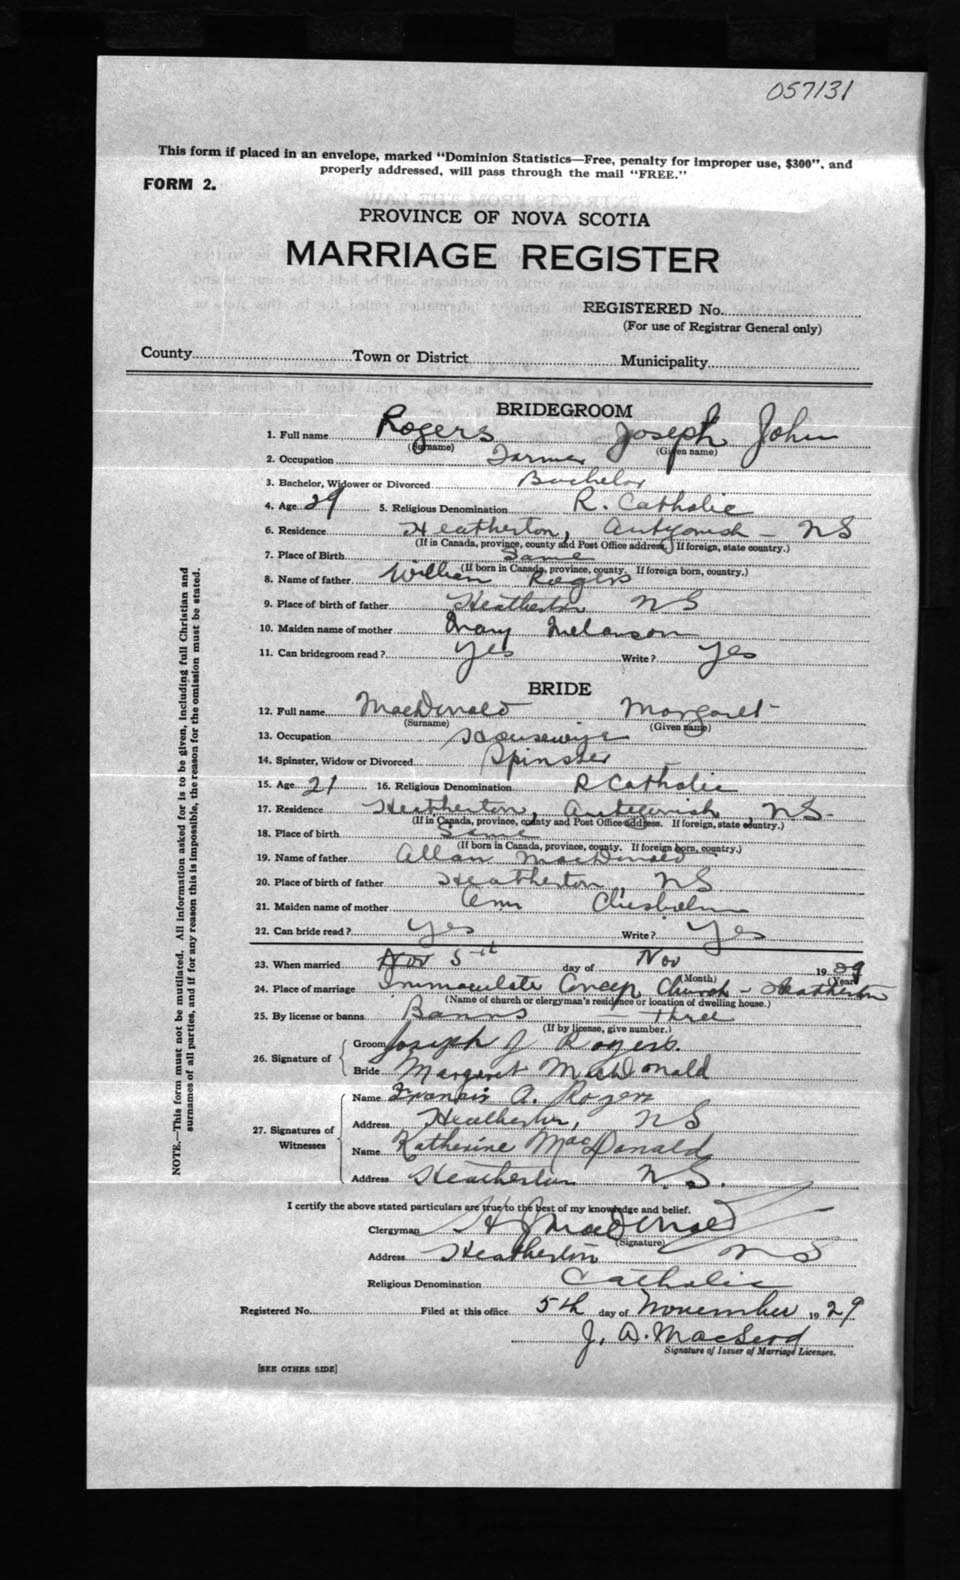 057131
This form if placed in an envelope, marked "Dominion Statistics—Free, penalty for improper use, $300", and
properly addressed, will pass through the mail "FREE."
FORM 2.
PROVINCE OF NOVA SCOTIA
MARRIAGE REGISTER
REGISTERED No.
(For use of Registrar General only)
County Town or District Municipality
BRIDEGROOM
1. Full name Rogers Joseph John
(Surname) (Given name)
2. Occupation Farmer
3. Bachelor, Widower or Divorced Bachelor
4. Age 29 5. Religious Denomination R. Catholic
6. Residence Heatherton, Antigonish - NS
(If in Canada, province, county and Post Office address. If foreign, state country.)
7. Place of Birth Same
(If born in Canada, province, county. If foreign born, country.)
8. Name of father William Rogers
9. Place of birth of father Heatherton NS
10. Maiden name of mother Mary Melanson
11. Can bridegroom read? Yes Write? Yes
BRIDE
12. Full name MacDonald Margaret
(Surname) (Given name)
13. Occupation Housewife
14. Spinster, Widow or Divorced Spinster
15. Age 21 16. Religious Denomination R Catholic
17. Residence Heatherton, Antigonish, NS.
(If in Canada, province, county and Post Office address. If foreign, state country.)
18. Place of birth Same
(If born in Canada, province, county. If foreign born, country.)
19. Name of father Allan MacDonald
20. Place of birth of father Heatherton, NS
21. Maiden name of mother Ann Chisholm
22. Can bride read? Yes Write? Yes
23. When married Nov 5th day of Nov 1929
(Month) (Year)
24. Place of marriage Immaculate Concep Church - Heatherton
(Name of church or clergyman's residence or location of dwelling house.)
25. By license or banns Banns - Three
(If by license, give number.)
26. Signature of
Groom Joseph J Rogers.
Bride Margaret MacDonald
27. Signatures of Witnesses
Name Francis A. Rogers
Address Heatherton, NS
Name Katherine MacDonald
Address Heatherton N.S.
I certify the above stated particulars are true to the best of my knowledge and belief.
Clergyman H J MacDonald
(Signature)
Address Heatherton NS
Religious Denomination Catholic
Registered No. Filed at this office 5th day of November 1929
J. D. MacLeod
Signature of Issuer of Marriage Licenses.
[SEE OTHER SIDE]
NOTE.—This form must not be mutilated. All information asked for is to be given, including full Christian and
surnames of all parties, and if for any reason this is impossible, the reason for the omission must be stated.